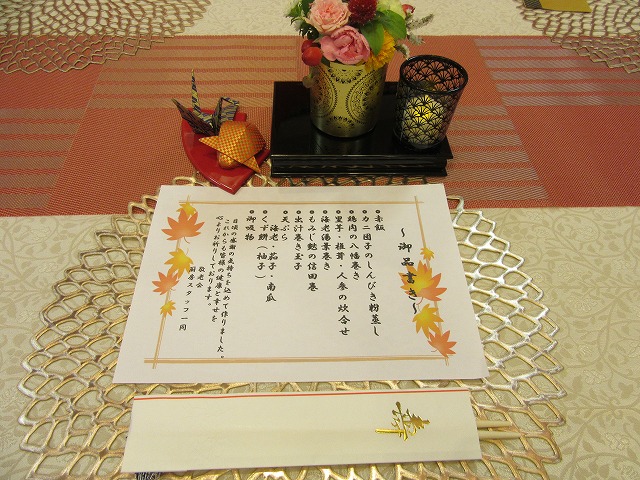 ～御品書き～
●赤飯
●カニ団子のしんびき粉蒸し
●鶏肉の八幡巻き
●里芋・椎茸・人参の炊合せ
●海老湯葉巻き
●もみじ麩の信田巻
●出汁巻き玉子
●天ぷら
海老・茄子・南瓜
●くず餅(柚子)
●御吸物
日頃の感謝の気持ちを込めて作りました。
これからも皆様の健康と幸せを
心よりお祈りしております。
敬老会
厨房スタッフ一同